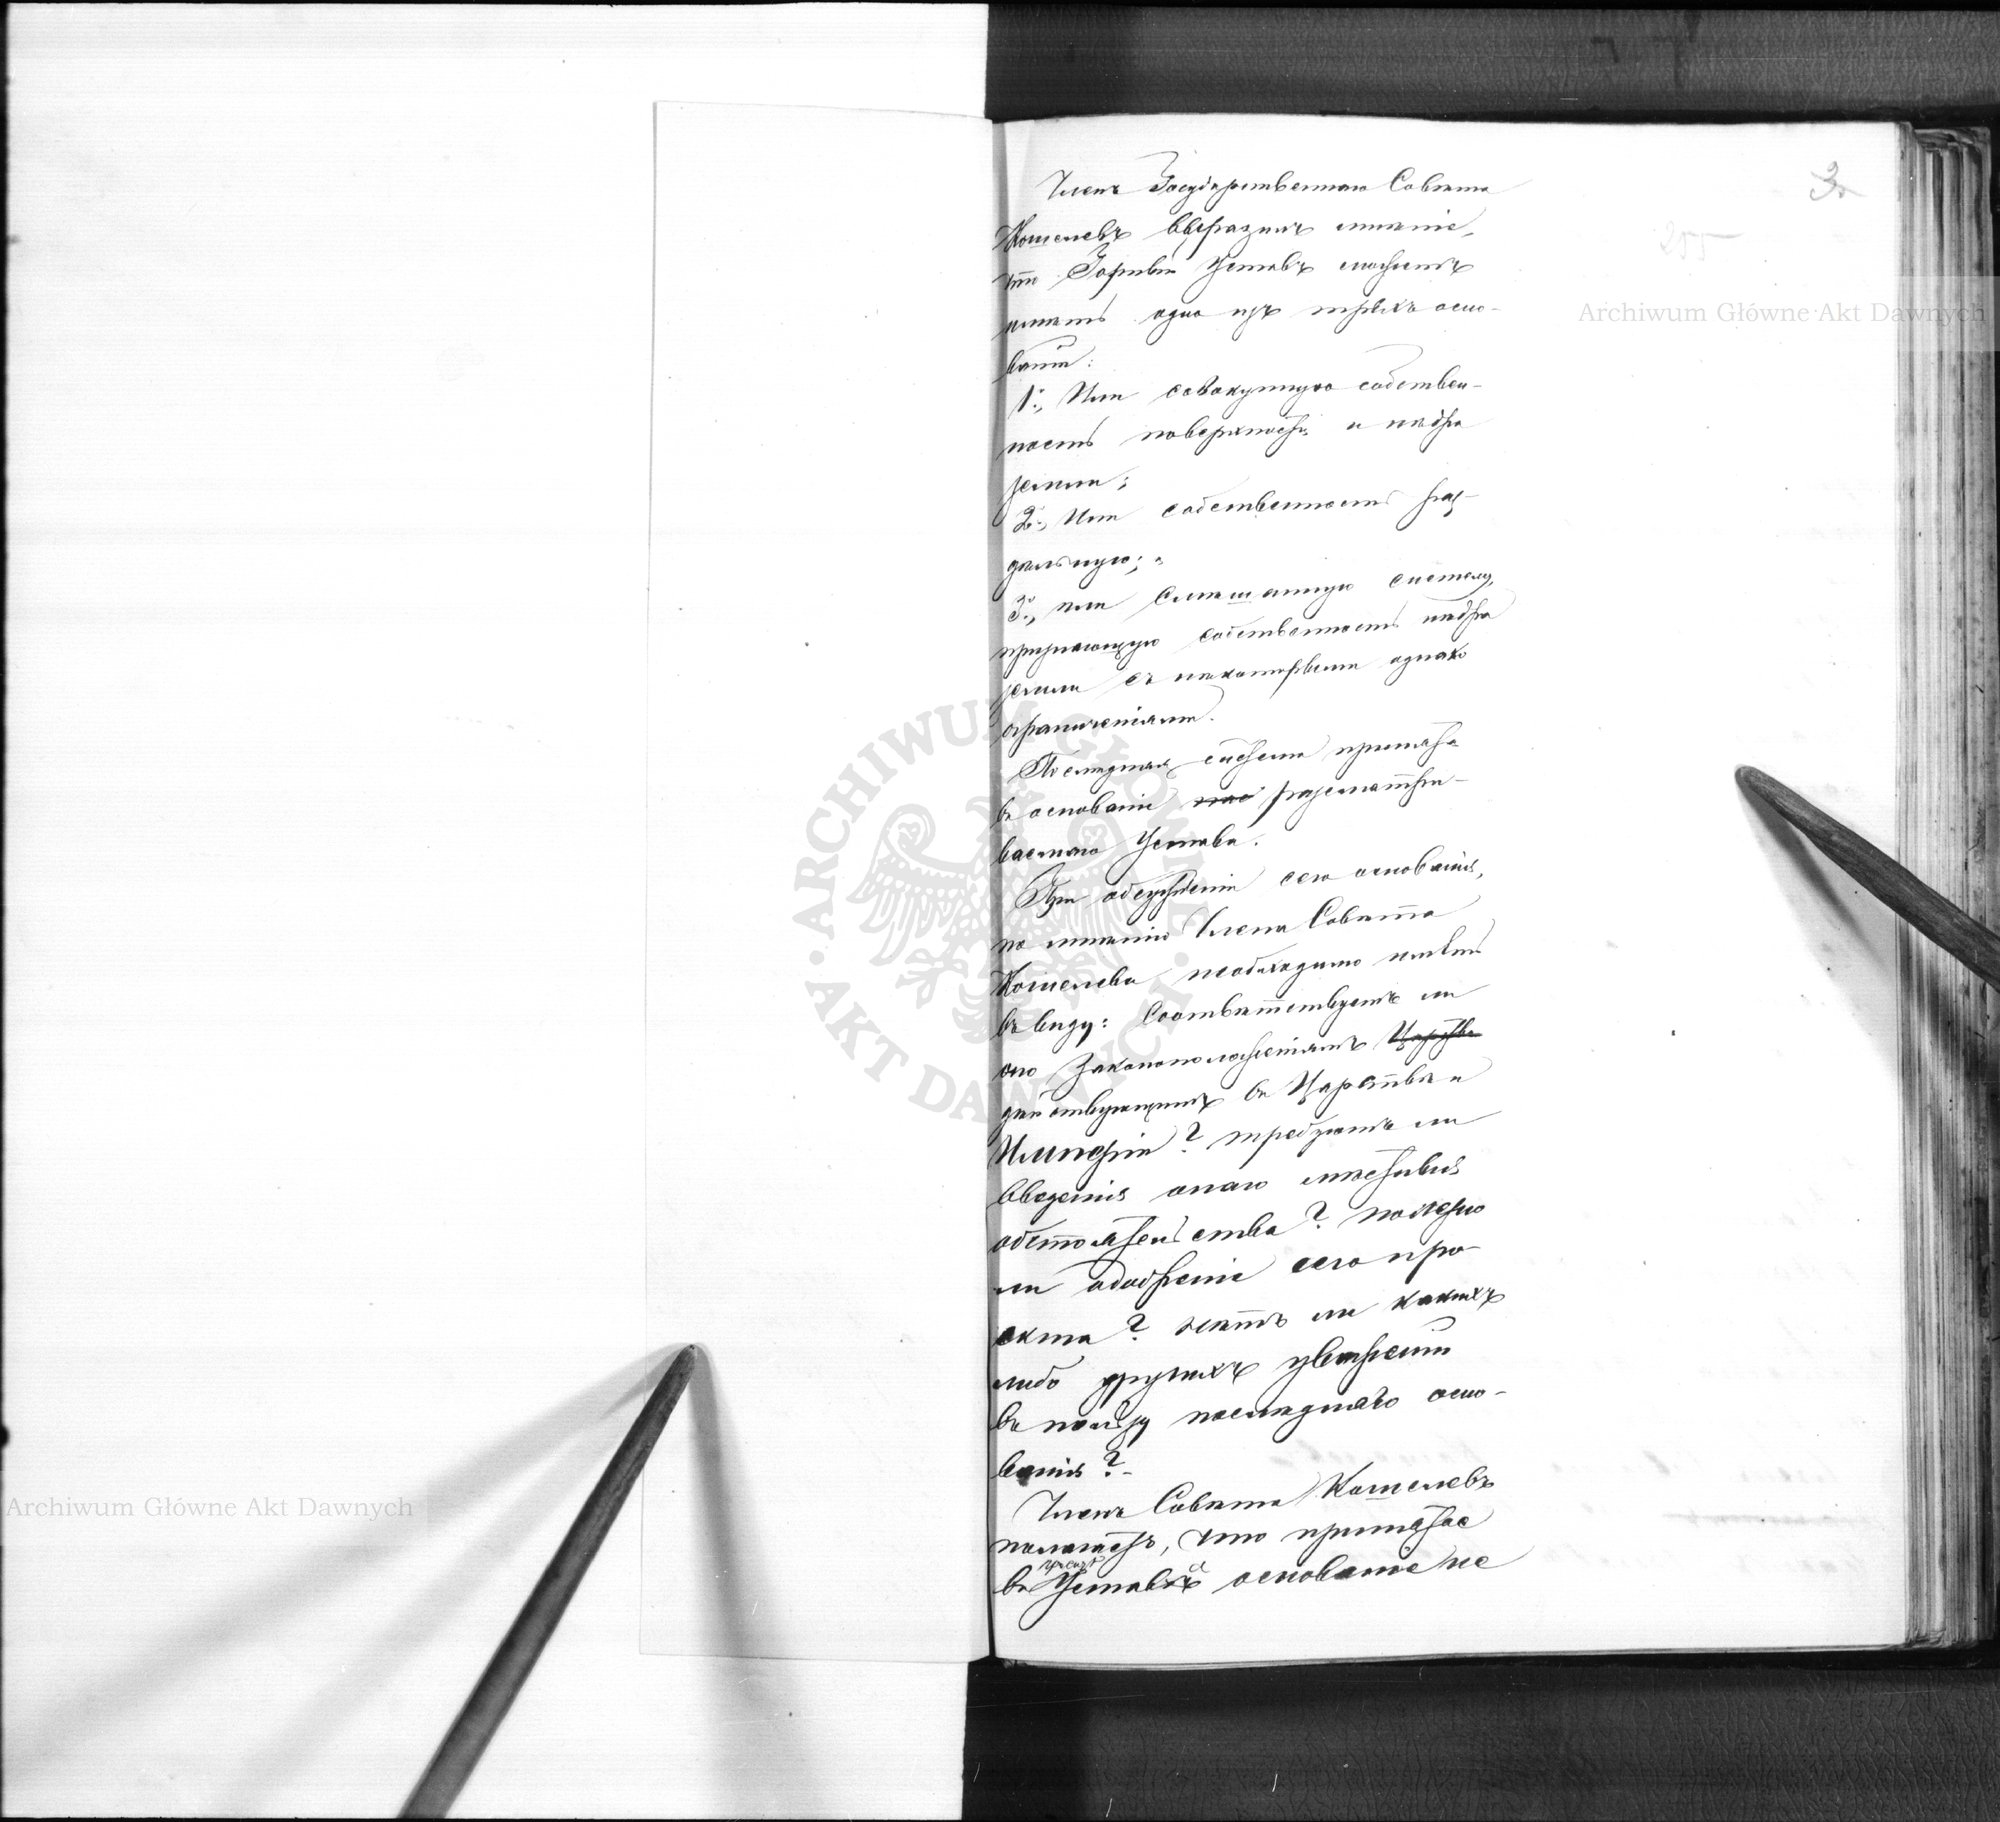 3.
255
Членъ Государственнаго Совѣта
Кошелевъ выразилъ мнѣніе,
что Горный Уставъ можетъ
имѣть одно изъ трехъ осно-
ваній:
1., Или совокупную собствен-
ность поверхности и нѣдръ
земли;
2., Или собственность раз-
дѣльную;
3., или смѣшанную систему,
признающую собственность нѣдръ
земли съ нѣкоторыми однако
ограниченіями.
Послѣдняя система принята
въ основаніе разсматри-
ваемаго Устава.
При обсужденіи сего основанія,
по мнѣнію Члена Совѣта
Кошелева необходимо имѣть
въ виду: Соотвѣтствуетъ ли
оно Законоположеніямъ Царства
дѣйствующимъ въ Царствѣ и
Имперіи? требуютъ ли
введенія онаго мѣстныя
обстоятельства? полезно
ли одобреніе сего про-
екта? нѣтъ ли какихъ
либо другихъ уваженій
въ пользу послѣдняго осно-
ванія?
Членъ Совѣта Кошелевъ
полагаетъ, что принятое
проектѣ
въ Устава основаніе не
Archiwum Główne Akt Dawnych
Archiwum Główne Akt Dawnych
ARCHIWUM GŁÓWNE AKT DAWNYCH